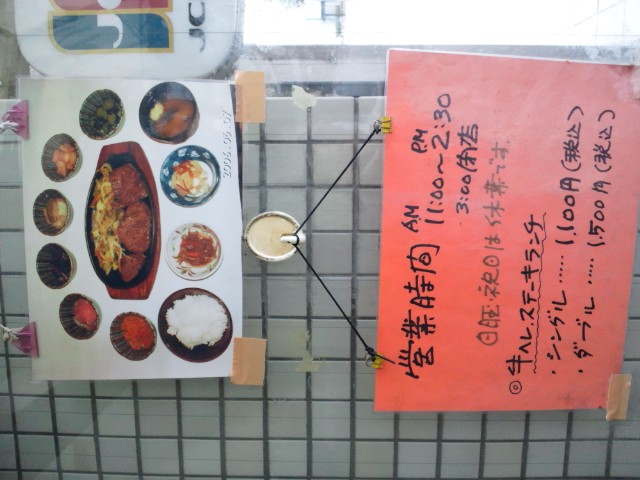 営業時間 AM 11:00～PM 2:30
3:00閉店
日曜・祝日は休業です。
◎牛ヘレステーキランチ
・シングル……1,100円(税込)
・ダーブル……1,500円(税込)
JC